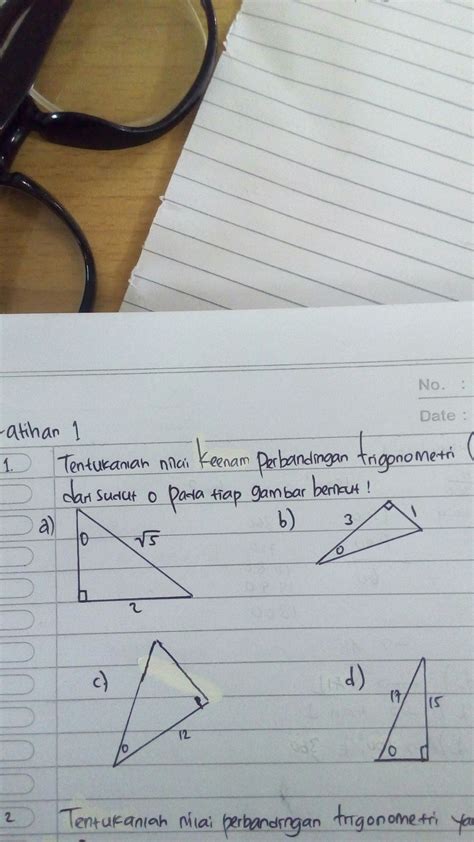 No. :
Date :
Latihan 1
1. Tentukanlah nilai keenam perbandingan trigonometri (
dari sudut θ pada tiap gambar berikut !
a) θ √5 2
b) 3 1 θ
c) θ 12
d) 17 15 θ
2 Tentukanlah nilai perbandingan trigonometri